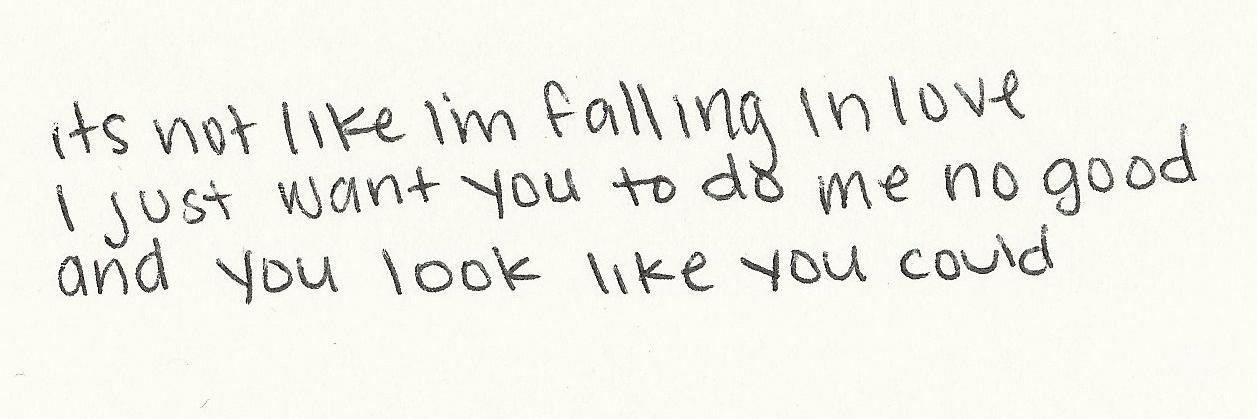 its not like I'm falling in love
I just want you to do me no good
and you look like you could